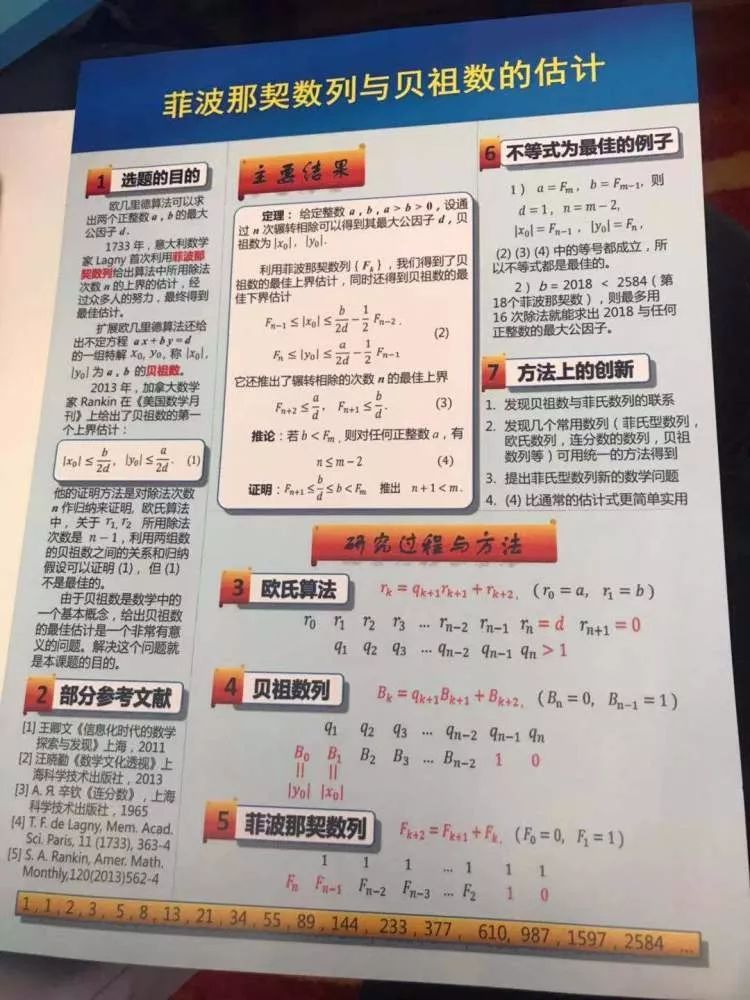 菲波那契数列与贝祖数的估计
1 选题的目的
欧几里德算法可以求
出两个正整数 a , b 的最大
公因子 d .
1733 年，意大利数学
家 Lagny 首次利用菲波那
契数列给出算法中所用除法
次数 n 的上界的估计，经
过众多人的努力，最终得到
最佳估计。
扩展欧几里德算法还给
出不定方程 ax + by = d
的一组特解 x₀, y₀, 称 |x₀|,
|y₀| 为 a , b 的贝祖数。
2013 年，加拿大数学
家 Rankin 在《美国数学月
刊》上给出了贝祖数的第一
个上界估计：
|x₀| ≤ b/2d, |y₀| ≤ a/2d. (1)
他的证明方法是对除法次数
n 作归纳来证明, 欧氏算法
中，关于 r₁, r₂ 所用除法
次数是 n − 1，利用两组数
的贝祖数之间的关系和归纳
假设可以证明 (1)，但 (1)
不是最佳的。
由于贝祖数是数学中的
一个基本概念，给出贝祖数
的最佳估计是一个非常有意
义的问题。解决这个问题就
是本课题的目的。
2 部分参考文献
[1] 王卿文《信息化时代的数学
探索与发现》上海，2011
[2] 汪晓勤《数学文化透视》上
海科学技术出版社，2013
[3] А. Я. 辛钦《连分数》，上海
科学技术出版社，1965
[4] T. F. de Lagny, Mem. Acad.
Sci. Paris, 11 (1733), 363-4
[5] S. A. Rankin, Amer. Math.
Monthly,120(2013)562-4
主要结果
定理：给定整数 a , b , a > b > 0，设通
过 n 次辗转相除可以得到其最大公因子 d，贝
祖数为 |x₀|, |y₀|.
利用菲波那契数列 { Fₖ }，我们得到了贝
祖数的最佳上界估计，同时还得到贝祖数的最
佳下界估计
Fₙ₋₁ ≤ |x₀| ≤ b/2d − 1/2 Fₙ₋₂ .
(2)
Fₙ ≤ |y₀| ≤ a/2d − 1/2 Fₙ₋₁
它还推出了辗转相除的次数 n 的最佳上界
Fₙ₊₂ ≤ a/d, Fₙ₊₁ ≤ b/d. (3)
推论：若 b < Fₘ , 则对任何正整数 a，有
n ≤ m − 2 (4)
证明：Fₙ₊₁ ≤ b/d ≤ b < Fₘ 推出 n + 1 < m .
6 不等式为最佳的例子
1 ) a = Fₘ , b = Fₘ₋₁, 则
d = 1, n = m − 2,
|x₀| = Fₙ₋₁ , |y₀| = Fₙ ,
(2) (3) (4) 中的等号都成立，所
以不等式都是最佳的。
2 ) b = 2018 < 2584 ( 第
18个菲波那契数 )，则最多用
16 次除法就能求出 2018 与任何
正整数的最大公因子。
7 方法上的创新
1. 发现贝祖数与菲氏数列的联系
2. 发现几个常用数列 ( 菲氏型数列，
欧氏数列，连分数的数列，贝祖
数列等 ) 可用统一的方法得到
3. 提出菲氏型数列新的数学问题
4. (4) 比通常的估计式更简单实用
研究过程与方法
3 欧氏算法 rₖ = qₖ₊₁rₖ₊₁ + rₖ₊₂, ( r₀ = a, r₁ = b )
r₀ r₁ r₂ r₃ ... rₙ₋₂ rₙ₋₁ rₙ = d rₙ₊₁ = 0
q₁ q₂ q₃ ... qₙ₋₂ qₙ₋₁ qₙ > 1
4 贝祖数列 Bₖ = qₖ₊₁Bₖ₊₁ + Bₖ₊₂, ( Bₙ = 0, Bₙ₋₁ = 1 )
q₁ q₂ q₃ ... qₙ₋₂ qₙ₋₁ qₙ
B₀ B₁ B₂ B₃ ... Bₙ₋₂ 1 0
|| ||
|y₀| |x₀|
5 菲波那契数列 Fₖ₊₂ = Fₖ₊₁ + Fₖ, ( F₀ = 0, F₁ = 1 )
1 1 1 ... 1 1 1
Fₙ Fₙ₋₁ Fₙ₋₂ Fₙ₋₃ ... F₂ 1 0
1 , 1 , 2 , 3 , 5 , 8 , 13 , 21 , 34 , 55 , 89 , 144 , 233 , 377 , 610, 987 , 1597 , 2584 ...